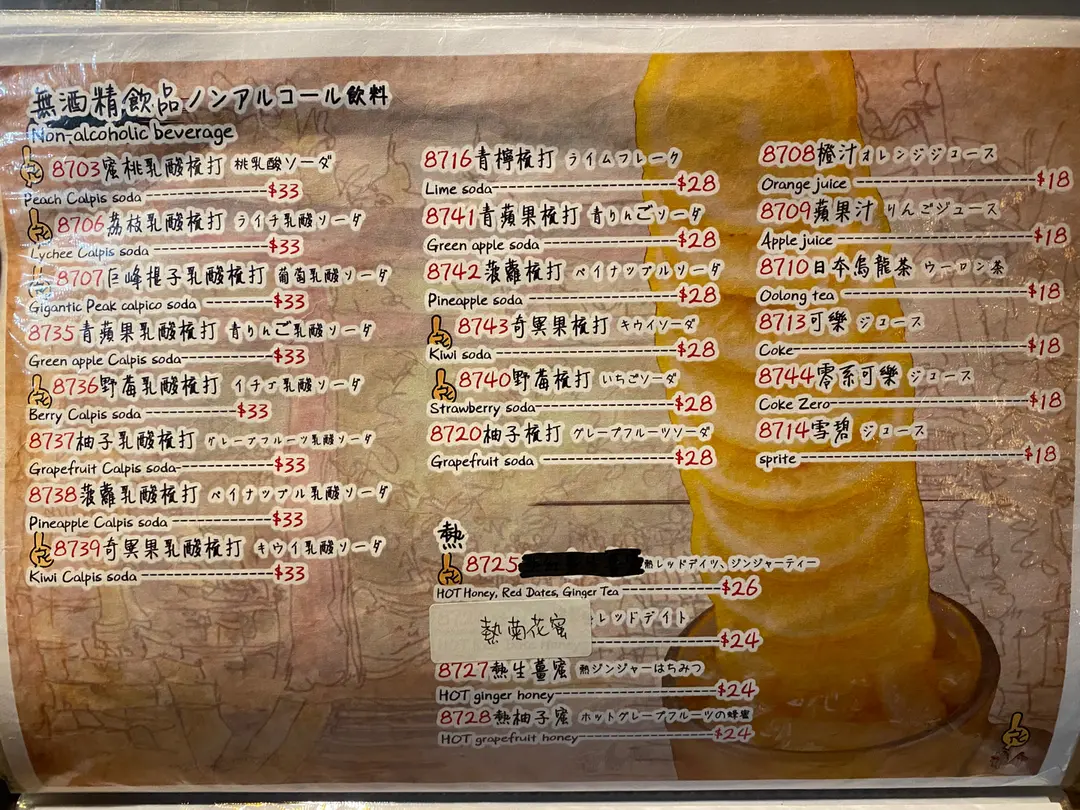 無酒精飲品ノンアルコール飲料
Non-alcoholic beverage
8703蜜桃乳酸梳打 桃乳酸ソーダ
Peach Calpis soda $33
8706荔枝乳酸梳打 ライチ乳酸ソーダ
Lychee Calpis soda $33
8707巨峰提子乳酸梳打 葡萄乳酸ソーダ
Gigantic Peak calpico soda $33
8735青蘋果乳酸梳打 青りんご乳酸ソーダ
Green apple Calpis soda $33
8736野莓乳酸梳打 イチゴ乳酸ソーダ
Berry Calpis soda $33
8737柚子乳酸梳打 グレープフルーツ乳酸ソーダ
Grapefruit Calpis soda $33
8738菠蘿乳酸梳打 ペイナップル乳酸ソーダ
Pineapple Calpis soda $33
8739奇異果乳酸梳打 キウイ乳酸ソーダ
Kiwi Calpis soda $33
8716青檸梳打 ライムフレーク
Lime soda $28
8741青蘋果梳打 青りんごソーダ
Green apple soda $28
8742菠蘿梳打 ペイナップルソーダ
Pineapple soda $28
8743奇異果梳打 キウイソーダ
Kiwi soda $28
8740野莓梳打 いちごソーダ
Strawberry soda $28
8720柚子梳打 グレープフルーツソーダ
Grapefruit soda $28
8708橙汁オレンジジュース
Orange juice $18
8709蘋果汁 りんごジュース
Apple juice $18
8710日本烏龍茶 ウーロン茶
Oolong tea $18
8713可樂 ジュース
Coke $18
8744零系可樂 ジュース
Coke Zero $18
8714雪碧 ジュース
sprite $18
熱
8725 熱レッドデイツ、ジンジャーティー
HOT Honey, Red Dates, Ginger Tea $26
熱菊花蜜 レッドデイト
$24
8727熱生薑蜜 熱ジンジャーはちみつ
HOT ginger honey $24
8728熱柚子蜜 ホットグレープフルーツの蜂蜜
HOT grapefruit honey $24